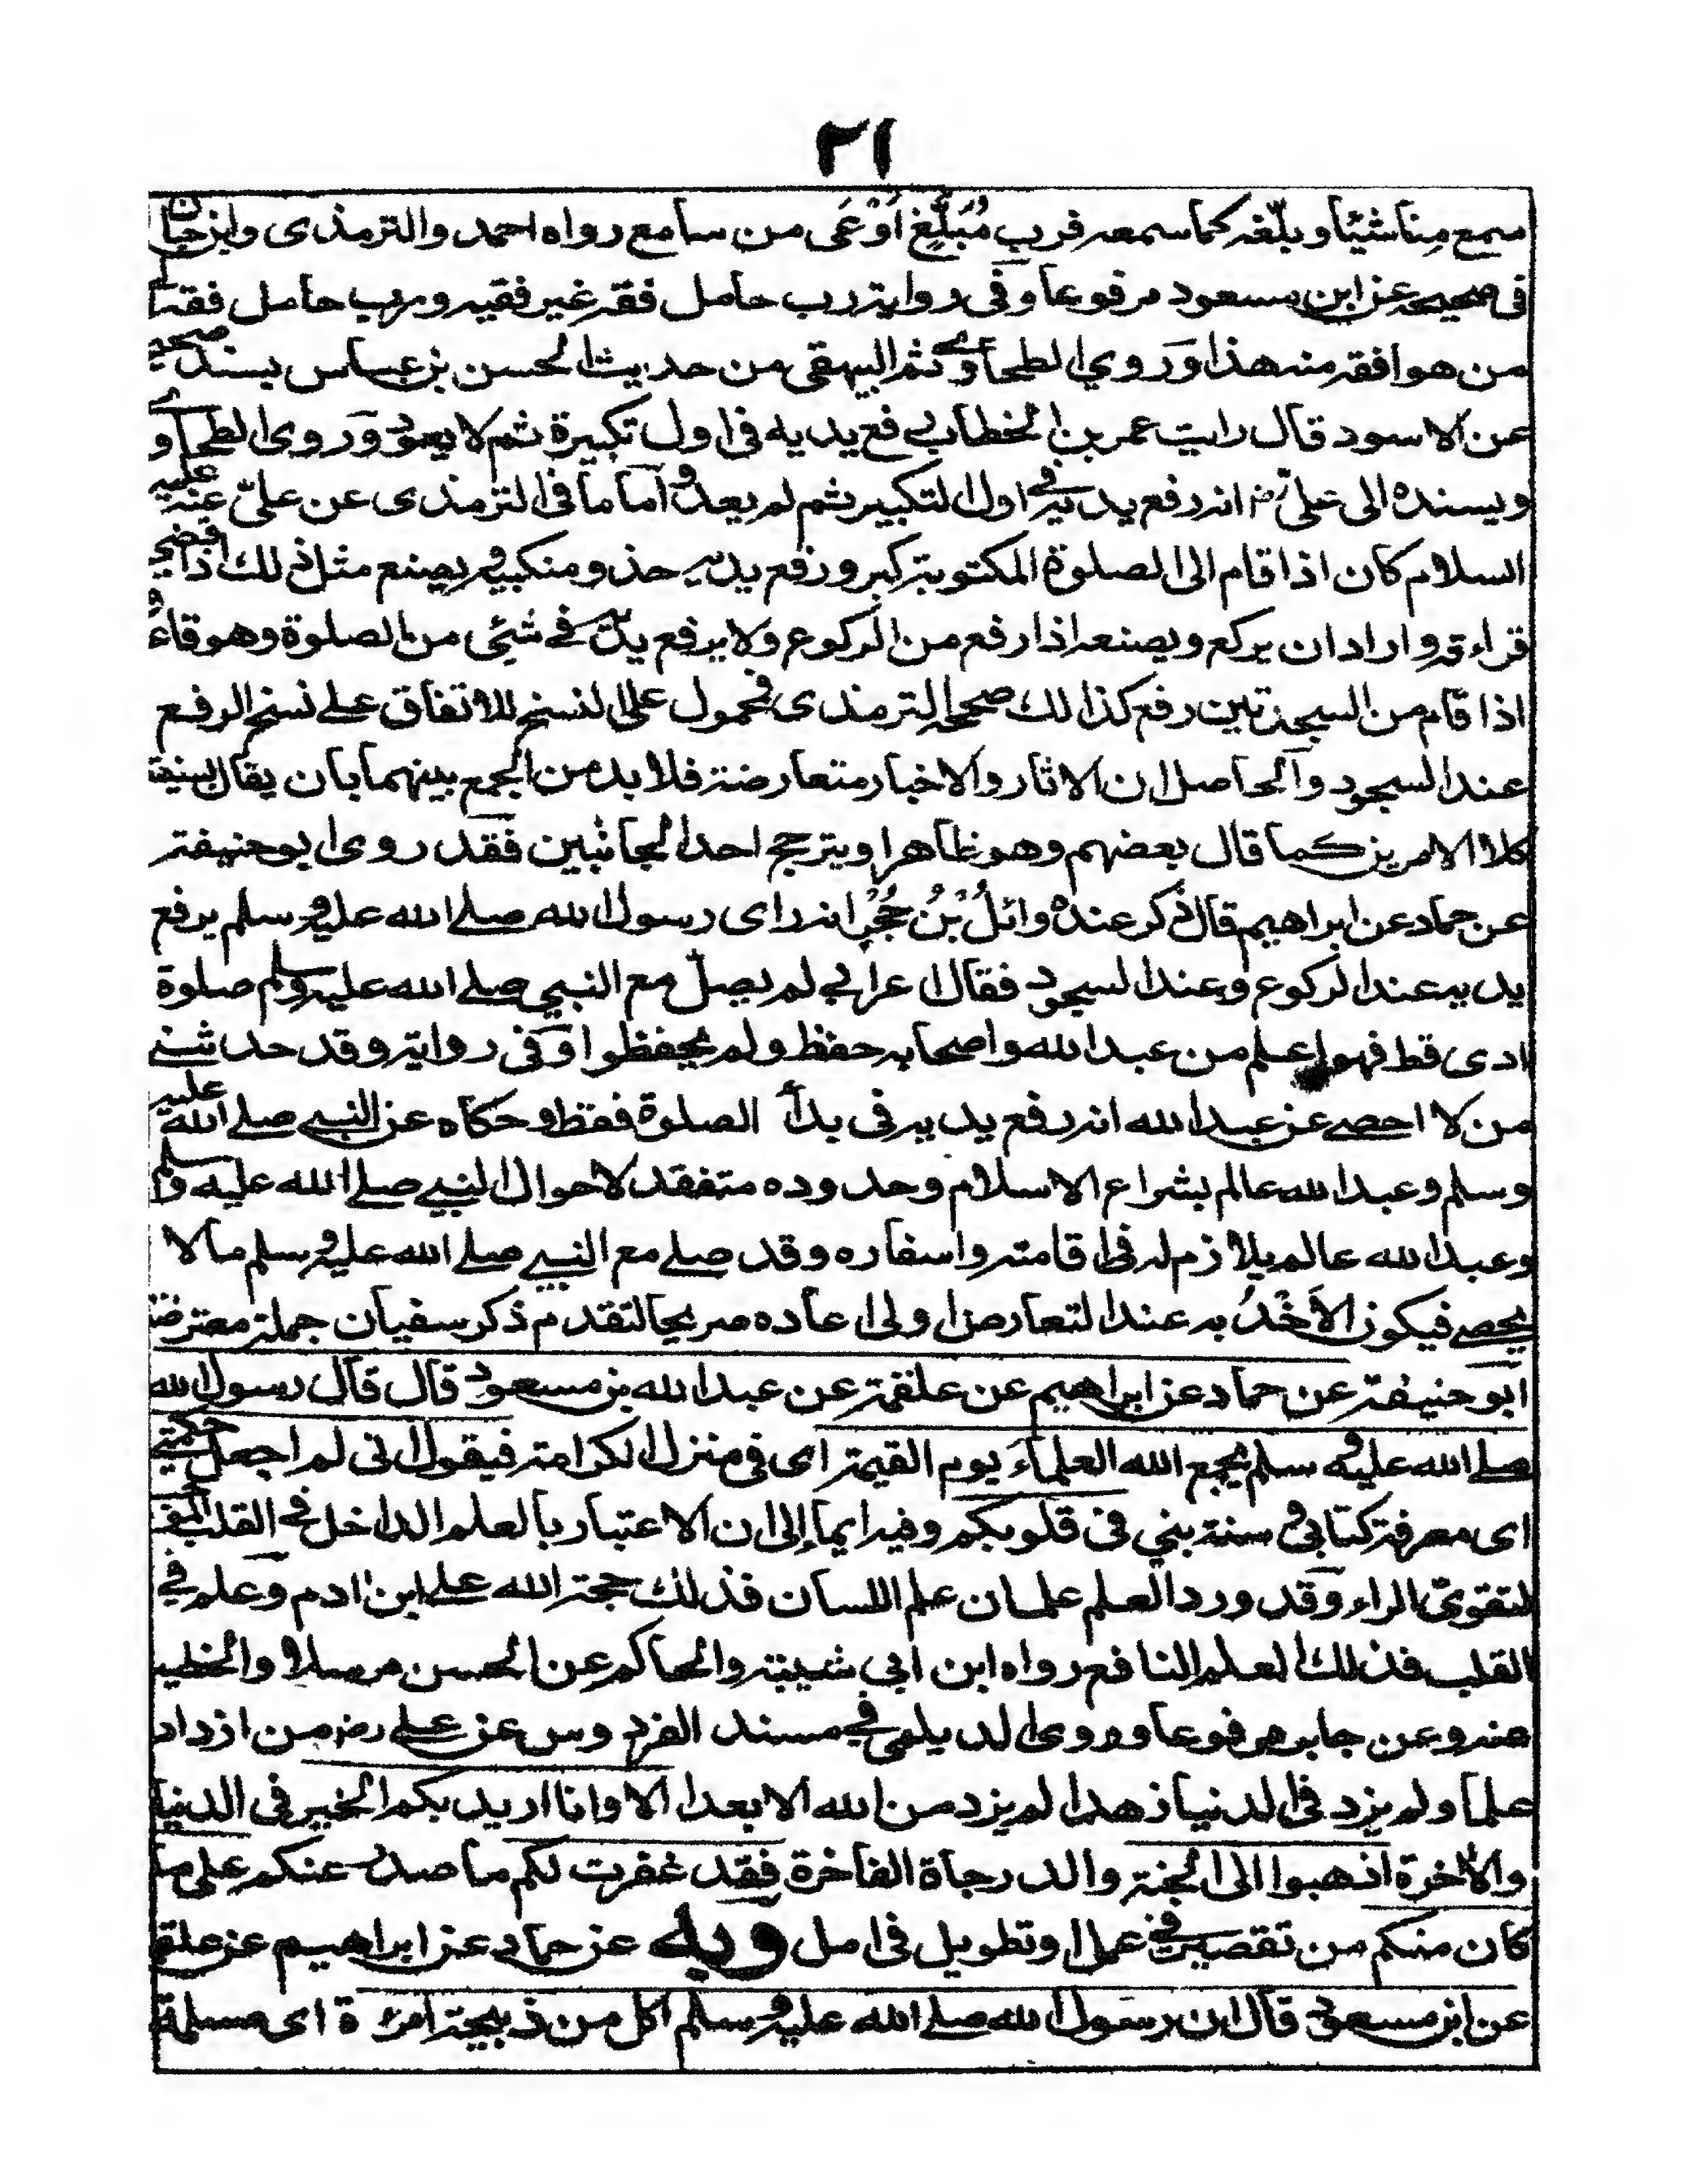 ٢١
سمع منا شيئا و بلّغه كما سمعه فرب مُبَلَّغٍ اَوْعَى من سامع رواه احمد والترمذى وابن حبان
فى صحيحه عن ابن مسعود مرفوعا وفى رواية رب حامل فقه غير فقيه ورب حامل فقه الى
من هو افقه منه هذا وروي الطحاوى ثم البيهقى من حديث الحسن بن عباس بسند صحيح
عن الاسود قال رايت عمر بن الخطاب يرفع يديه فى اول تكبيرة ثم لا يعود وروى الطحاو
ويسنده الى على رض انه رفع يديه فى اول التكبير ثم لم يعد واما ما فى الترمذى عن على عنه عليه
السلام كان اذا قام الى الصلوة المكتوبة كبر ورفع يديه حذو منكبيه ويصنع مثل ذلك اذا قضى
قراءته واراد ان يركع ويصنعه اذا رفع من الركوع ولا يرفع يديه فے شئى من الصلوة وهو قاعد
اذا قام من السجدتين رفع كذالك صححه الترمذى فمحمول على النسخ للاتفاق علے نسخ الرفع
عند السجود والحاصل ان الاثار والاخبار متعارضة فلا بد من الجمع بينهما بان يقال بسنية
كلا الامرين كما قال بعضهم وهو ظاهر او يترجح احد الجانبين فقد روى ابو حنيفة
عن حماد عن ابراهيم قال ذكر عنده وائلُ بْنُ حُجْرٍ انه راى رسول الله صلے الله عليه وسلم يرفع
يديه عند الركوع وعند السجود فقال اعرابي لم يصلّ مع النبي صلے الله عليه وسلم صلوة
ادى قط فهو اعلم من عبد الله واصحابه حفظ ولم يحفظوا وفى رواية وقد حدثنے
من لا احصے عن عبد الله انه رفع يديه فى بدأ الصلوة فقط وحكاه عن النبے صلے الله عليه
وسلم وعبد الله عالم بشراع الاسلام وحدوده متفقد لاحوال النبے صلے الله عليه وسلم
وعبد الله عالم يلازم له فى اقامته واسفاره وقد صلے مع النبے صلے الله عليه وسلم مالا
يحصے فيكون الاَخْذُ به عند التعارض اولى اعاده صريحا لتقدم ذكر سفيان جملة معترضة
ابو حنيفة عن حماد عن ابراهيم عن علقمة عن عبد الله بن مسعود قال قال رسول الله
صلے الله عليه وسلم يجمع الله العلماءَ يوم القيمة اى فى منزل الكرامة فيقول انى لم اجعل حكمتى
اى معرفة كتابى و سنة نبي فى قلوبكم وفيه ايما إلى ان الاعتبار بالعلم الداخل فے القلب
لتقوى الراء وقد ورد العلم علمان علم اللسان فذلك حجة الله على ابن ادم وعلم فى
القلب فذلك العلم النافع رواه ابن ابى شيبة والحاكم عن الحسن مرسلا والخطيب
عنه وعن جابر مرفوعا وروى الديلمى فے مسند الفردوس عن علے رض من ازداد
علما ولم يزد فى الدنيا زهدا لم يزد من الله الا بعدا الا وانا اريد بكم الخير فى الدنيا
والاخرة اذهبوا الى الجنة والدرجاة الفاخرة فقد غفرت لكم ما صدر عنكم على ما
كان منكم من تقصير فى عمل او تطويل فى امل وبه عن حماد عن ابراهيم عن علقمة
عن ابن مسعود قال ان رسول الله صلے الله عليه وسلم اكل من ذبيحة امرءة اى مسلمة